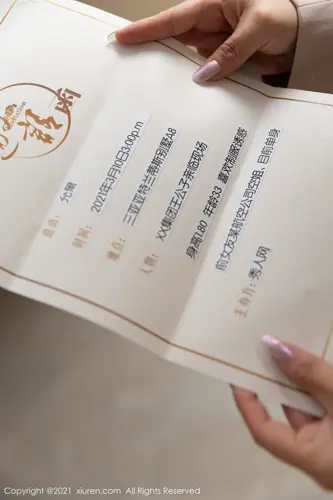 邀
尤果
时间：
2021年3月10日3:00p.m
地点：
三亚亚特兰蒂斯别墅A8
人物：
XX集团王公子亲临现场
身高180 年龄33 喜欢制服诱惑
前女友某航空公司空姐，目前单身
主办方：秀人网
Copyright @2021 xiuren.com All Rights Reserved